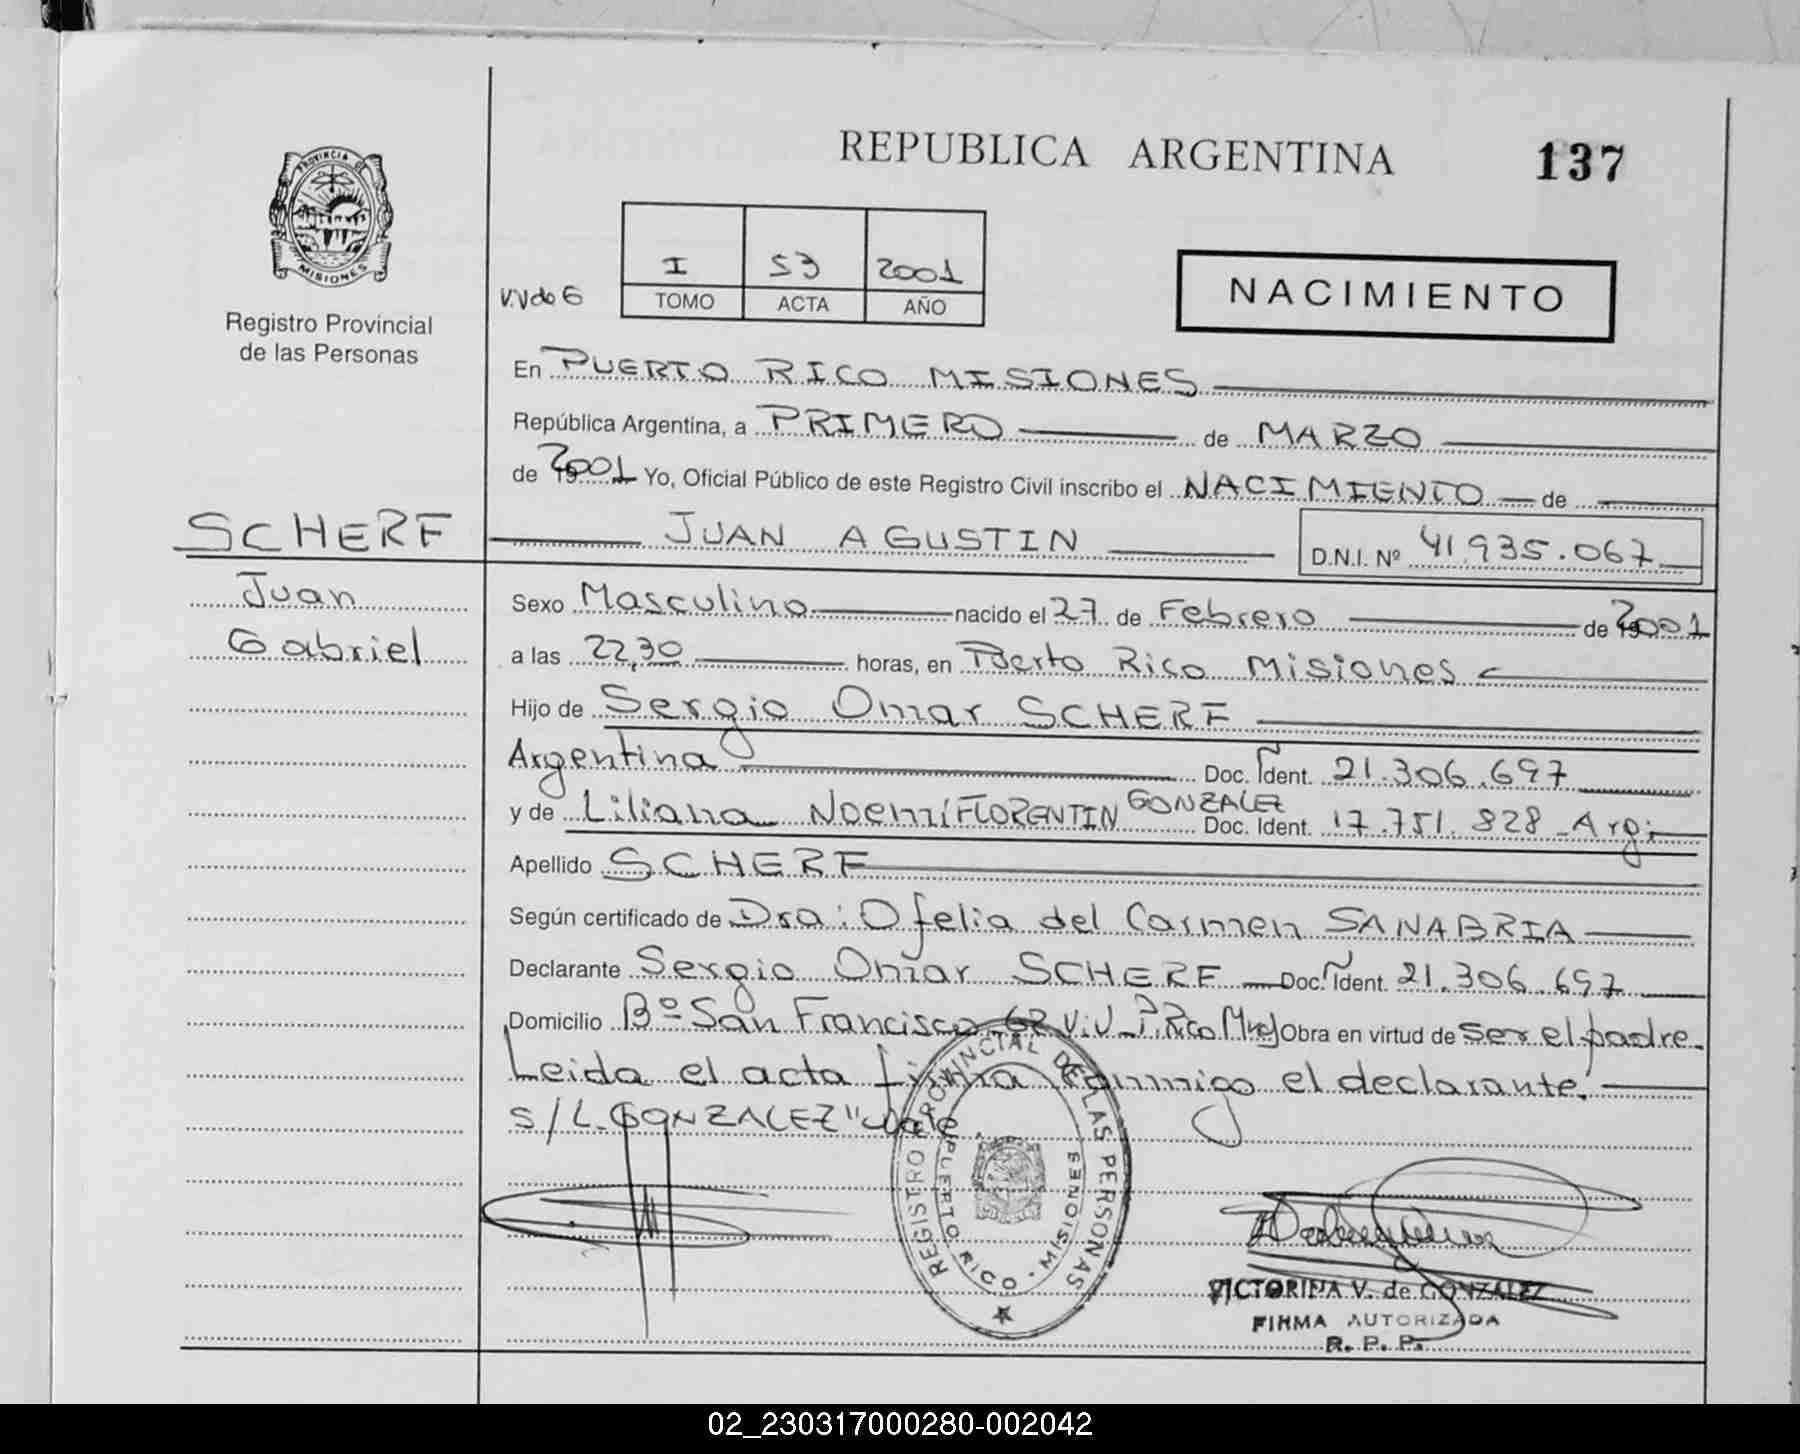 REPUBLICA ARGENTINA
137
PROVINCIA DE
MISIONES
Registro Provincial
de las Personas
I 53 2001
V.Vdo G
TOMO ACTA AÑO
NACIMIENTO
En PUERTO RICO MISIONES
República Argentina, a PRIMERO de MARZO
de 2001 Yo, Oficial Público de este Registro Civil inscribo el NACIMIENTO de
SCHERF
JUAN AGUSTIN D.N.I. Nº 41.935.067
Juan
Gabriel
Sexo Masculino nacido el 27 de Febrero de 2001
a las 22,30 horas, en Puerto Rico Misiones
Hijo de Sergio Omar SCHERF
Argentina Doc. Ident. 21.306.697
y de Liliana Noemí FLORENTIN GONZALEZ Doc. Ident. 17.751.828 Arg:
Apellido SCHERF
Según certificado de Dra: Ofelia del Carmen SANABRIA
Declarante Sergio Omar SCHERF Doc. Ident. 21.306.697
Domicilio Bº San Francisco 62 Viv. P. Rico Mnes Obra en virtud de ser el padre.
Leida el acta firma conmigo el declarante.
S/L. GONZALEZ" Vale.
REGISTRO PROVINCIAL DE LAS PERSONAS
PUERTO RICO - MISIONES
VICTORINA V. de GONZALEZ
FIRMA AUTORIZADA
R. P. P.
02_230317000280-002042